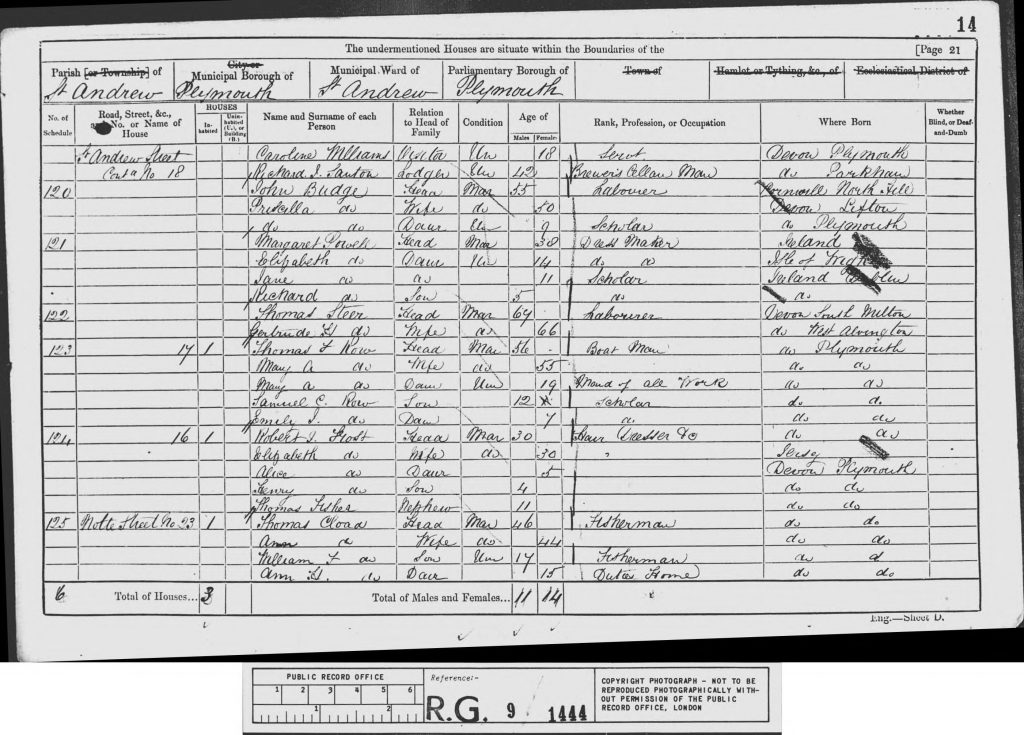 14
The undermentioned Houses are situate within the Boundaries of the [Page 21
Parish [or Township] of City or Municipal Borough of Municipal Ward of Parliamentary Borough of Town of Hamlet or Tything, &c., of Ecclesiastical District of
St Andrew Plymouth St Andrew Plymouth
No. of Schedule Road, Street, &c., and No. or Name of House HOUSES Inhabited Uninhabited (U.), or Building (B.) Name and Surname of each Person Relation to Head of Family Condition Age of Males Females Rank, Profession, or Occupation Where Born Whether Blind, or Deaf-and-Dumb
St Andrew Street Caroline Williams Visitor Un 18 Servt Devon Plymouth
Cont d No 18 Richard J. Lodger Un 42 Brewer's Cellar Man do Parkham
120 John Budge Head Mar 55 Labourer Cornwall North Hill
Priscilla do Wife do 50 Devon Lifton
do do Daur Un 9 Scholar do Plymouth
121 Margaret Powell Head Mar 38 Dress Maker Ireland
Elizabeth do Daur Un 14 do do Isle of Wight
Jane do do 11 Scholar Ireland
Richard do Son 5 do do
122 Thomas Steer Head Mar 67 Labourer Devon South Milton
Gertrude H do Wife do 66 do West Alvington
123 17 1 Thomas F Row Head Mar 56 Boat Man do Plymouth
Mary A do Wife do 55 do do
Mary A do Daur Un 19 Maid of all Work do do
Samuel C. Row Son 12 Scholar do do
Emily J. do Daur 7 do do do
124 16 1 Robert J. Frost Head Mar 30 Hair Dresser &c do do
Elizabeth do Wife do 30 " Jersey
Alice do Daur 5 Devon Plymouth
Henry do Son 4 do do
Thomas Fisher Nephew 11 do do
125 Notte Street No 23 1 Thomas Cload Head Mar 46 Fisherman do do
Ann do Wife do 44 do do
William F do Son Un 17 Fisherman do d
Ann H. do Daur 15 Duties Home do do
6 Total of Houses... 3 Total of Males and Females... 11 14
Eng.—Sheet D.
PUBLIC RECORD OFFICE
1 2 3 4 5 6
1 2
Reference:-
R.G. 9 1444
COPYRIGHT PHOTOGRAPH - NOT TO BE
REPRODUCED PHOTOGRAPHICALLY WITH-
OUT PERMISSION OF THE PUBLIC
RECORD OFFICE, LONDON